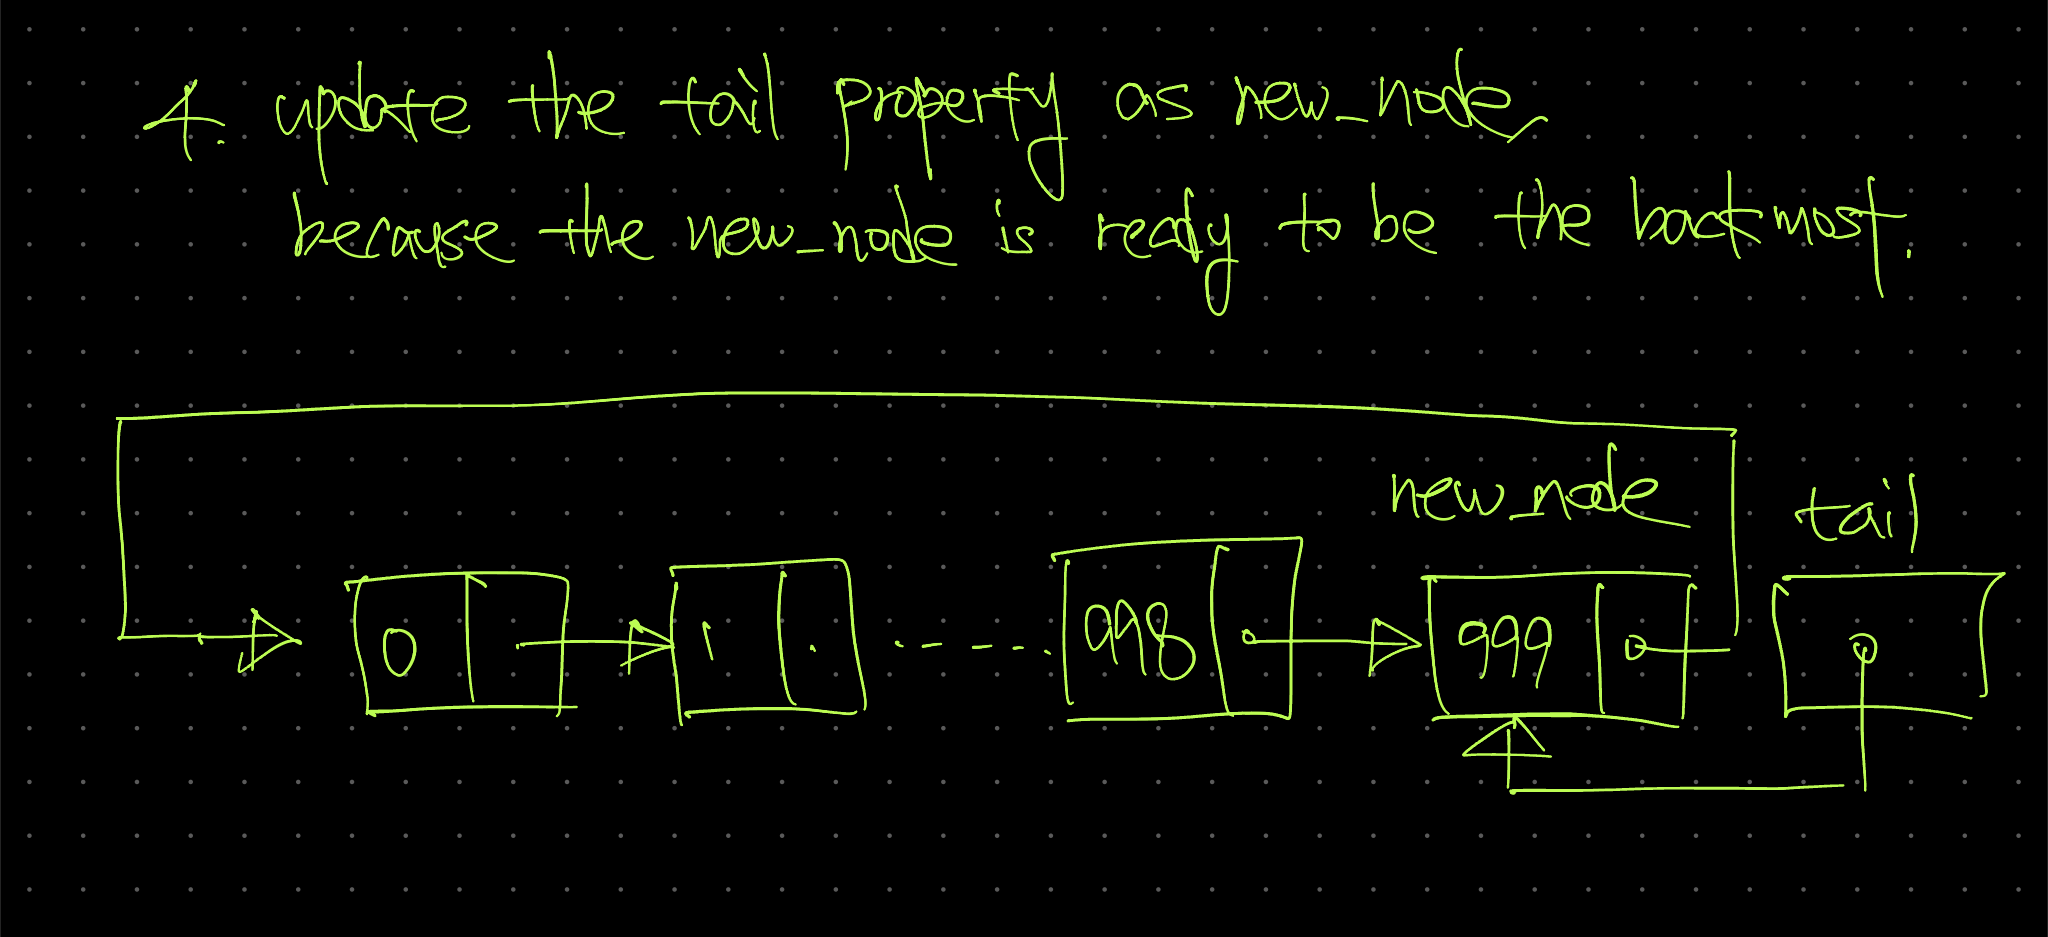 4. update the tail property as new_node,
because the new_node is ready to be the backmost.
new_node
tail
0
1
998
999